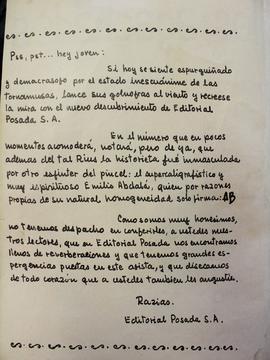 Pss, pst... hey joven:
Si hoy se siente espurquiñado
y demacrasofo por el estado inescuánime de las
tornamusas, lance sus golnofras al viauto y recréese
la mira con el nuevo descubrimiento de Editorial
Posada S.A.
En el número que en pocos
momentos acomoderá, notará, pero de ya, que
ademas del tal Rius la historieta fué inmasculada
por otro esfinter del pincel: el supercaligrafístico y
muy espiritiioso Emilio Abdalá, quien por razones
propias de su natural homogeneidad, solo firma: AB
Como somos muy honésimos,
no tenemos despacho en conferirles, a ustedes nues-
tros lectores, que en Editorial Posada nos encontramos
llenos de reverberaciones y que tenemos grandes es-
pergencias puestas en este asista, y que diseamos
de todo corazón que a ustedes tambien les angustie.
Razias.
Editorial Posada S.A.